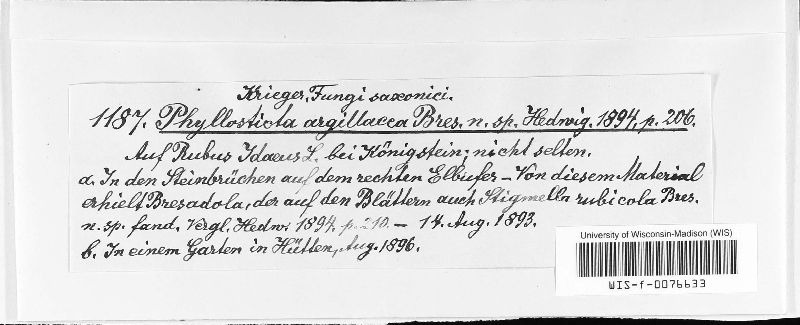 Krieger, Fungi saxonici.
1187. Phyllosticta argillacea Bres. n. sp. Hedwig. 1894, p. 206.
Auf Rubus Idaeus L. bei Königstein; nicht selten.
a. In den Steinbrüchen auf dem rechten Elbufer – Von diesem Material
erhielt Bresadola, der auf den Blättern auch Stigmella rubicola Bres.
n. sp. fand. Vergl. Hedw. 1894. p. 210. – 14. Aug. 1893.
b. In einem Garten in Hütten, Aug. 1896.
University of Wisconsin-Madison (WIS)
WIS-f-0076633